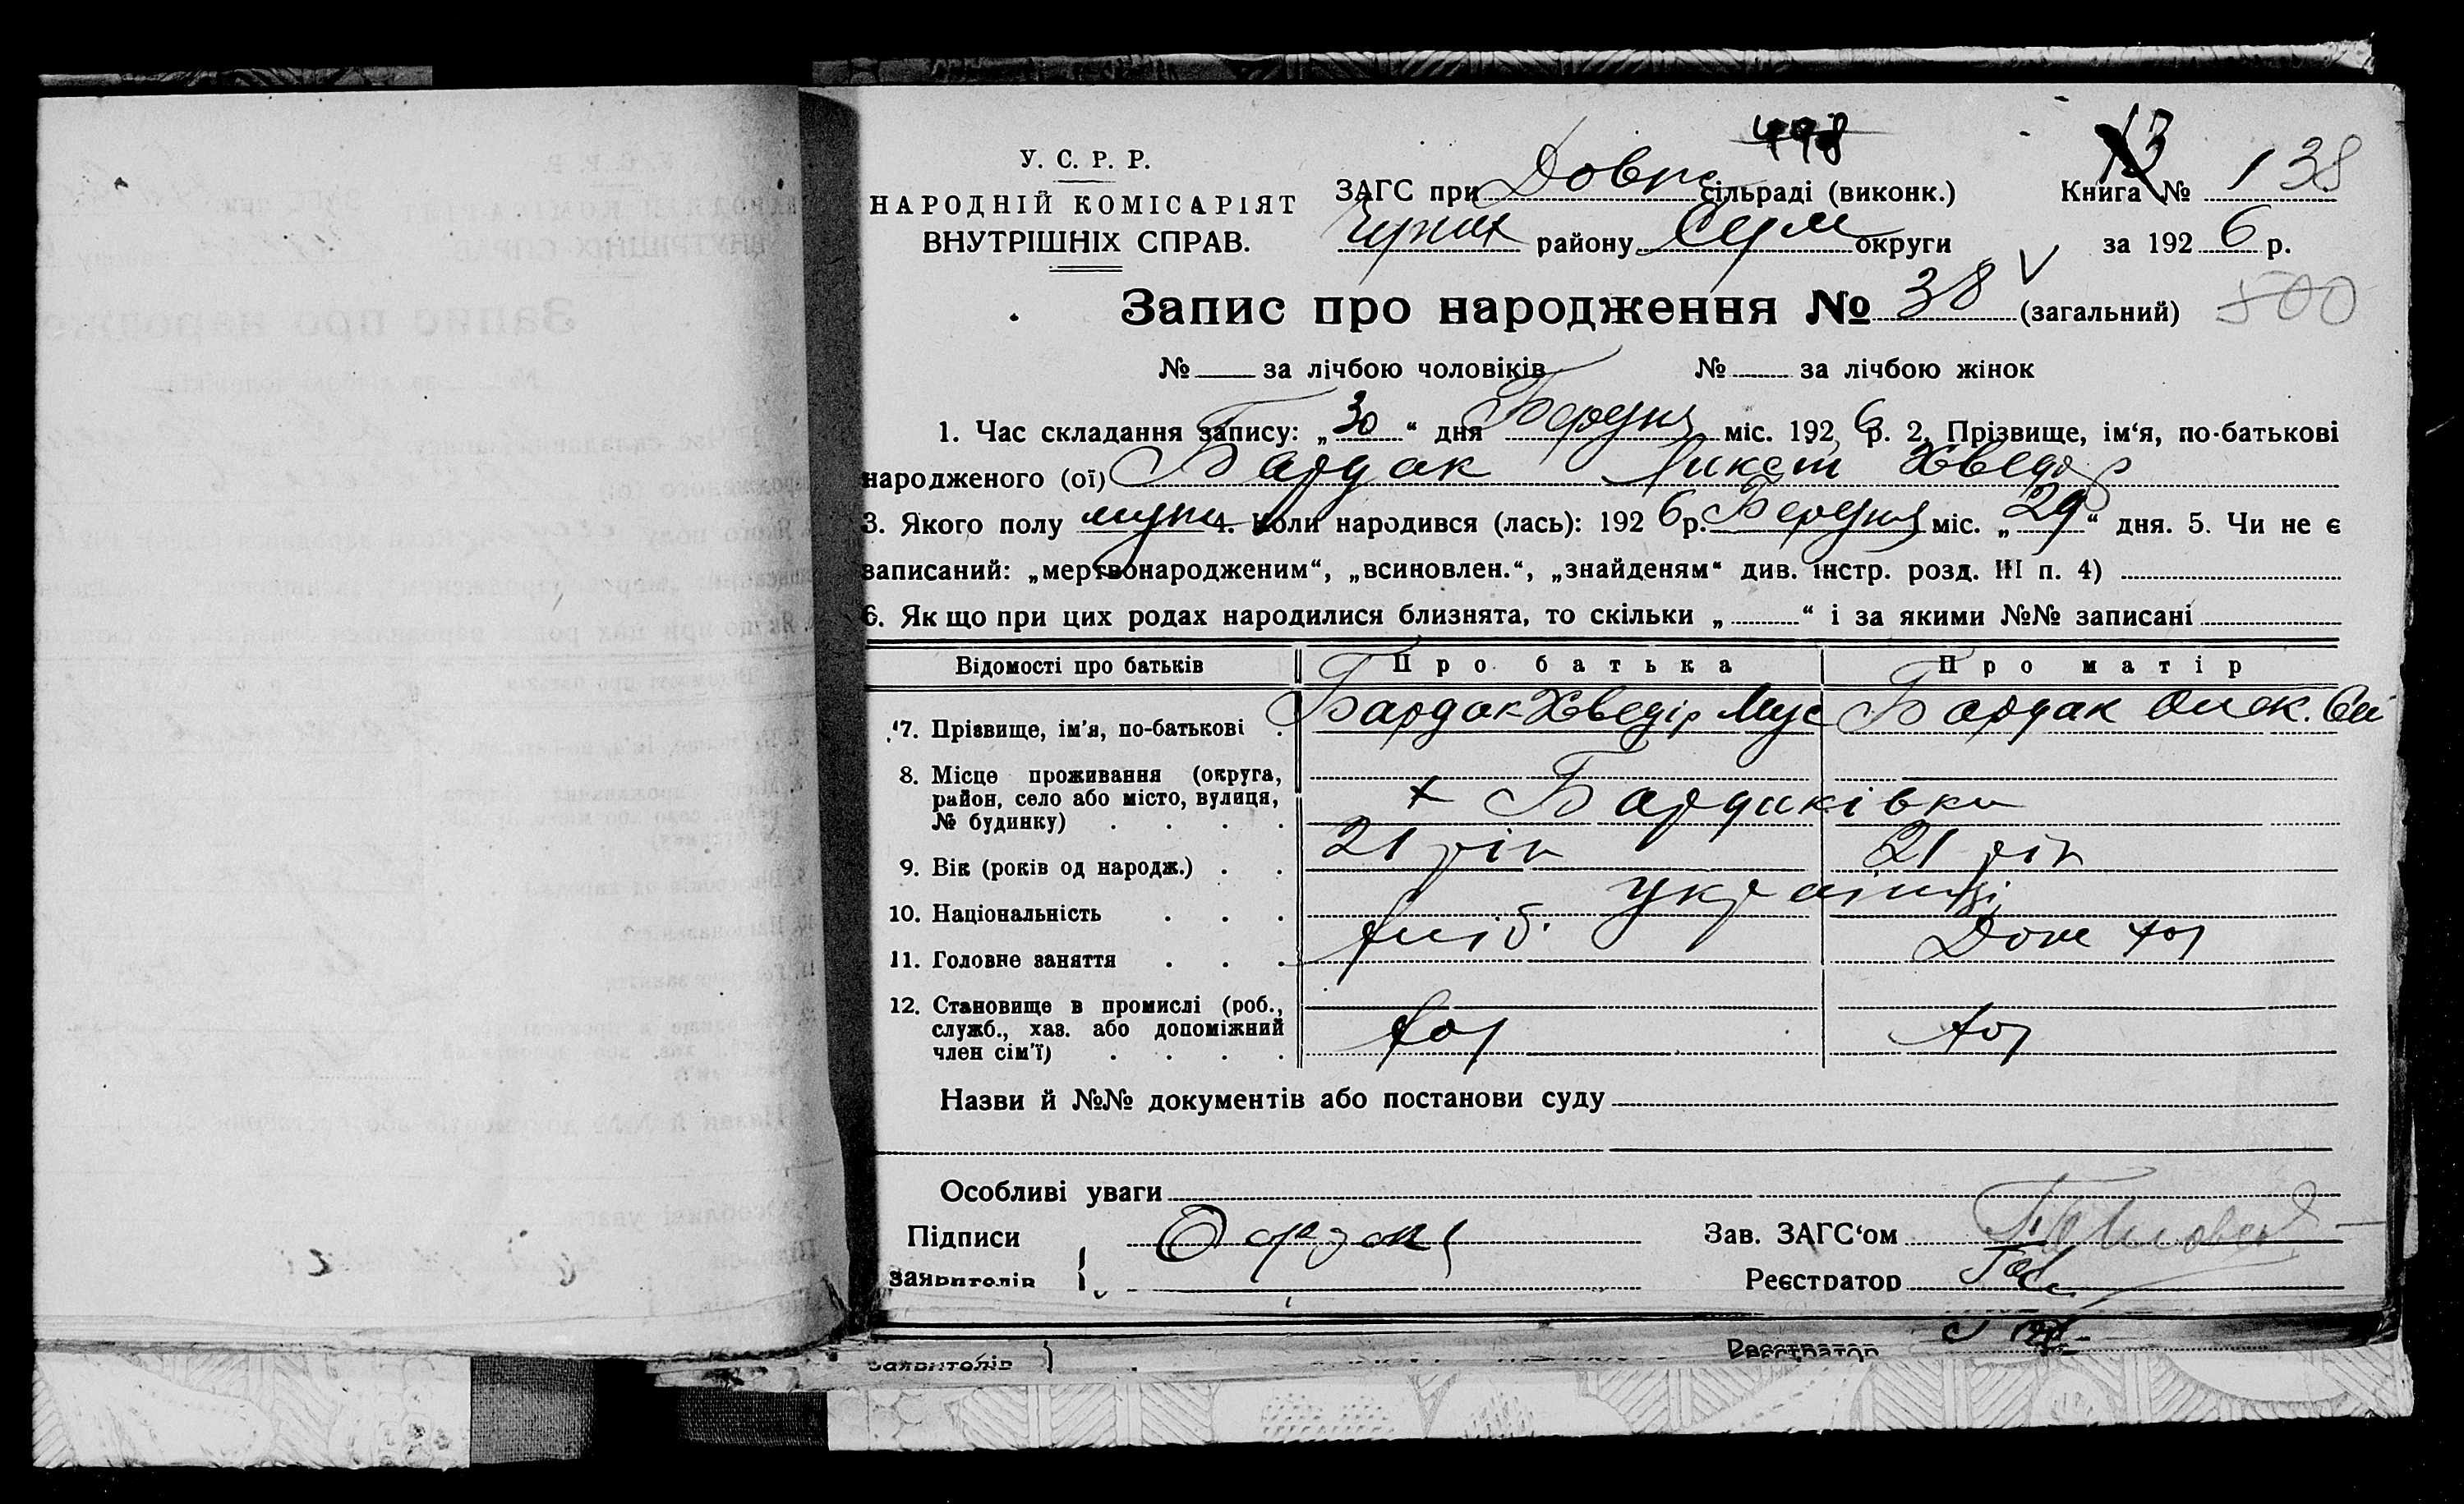 498
У. С. Р. Р.
НАРОДНІЙ КОМІСАРІЯТ
ВНУТРІШНІХ СПРАВ.
ЗАГС при Добря сільраді (виконк.)
району округи
13
Книга № 138
за 192 6 р.
Запис про народження № 38 (загальний) 500
№ за лічбою чоловіків № за лічбою жінок
1. Час складання запису: „ 30 “ дня Березня міс. 192 6 р. 2. Прізвище, ім‘я, по-батькові
народженого (ої) Бардак Микет Хведор
3. Якого полу муж 4. Коли народився (лась): 192 6 р. Березня міс. „ 29 “ дня. 5. Чи не є
записаний: „мертвонародженим“, „всиновлен.“, „знайденям“ див. інстр. розд. III п. 4)
6. Як що при цих родах народилися близнята, то скільки „ “ і за якими №№ записані
Відомості про батьків Про батька Про матір
7. Прізвище, ім‘я, по-батькові Бардак Хведір Мус Бардак Олек.
8. Місце проживання (округа, район, село або місто, вулиця, № будинку) х Бардаківка
9. Вік (років од народж.) 21 рік 21 рік
10. Національність українці
11. Головне заняття хліб. Дом хоз
12. Становище в промислі (роб., служб., хаз. або допоміжний член сім‘ї) хоз хоз
Назви й №№ документів або постанови суду
Особливі уваги
Підписи
заявителів
Зав. ЗАГС‘ом
Реєстратор
заявителів
Реєстратор